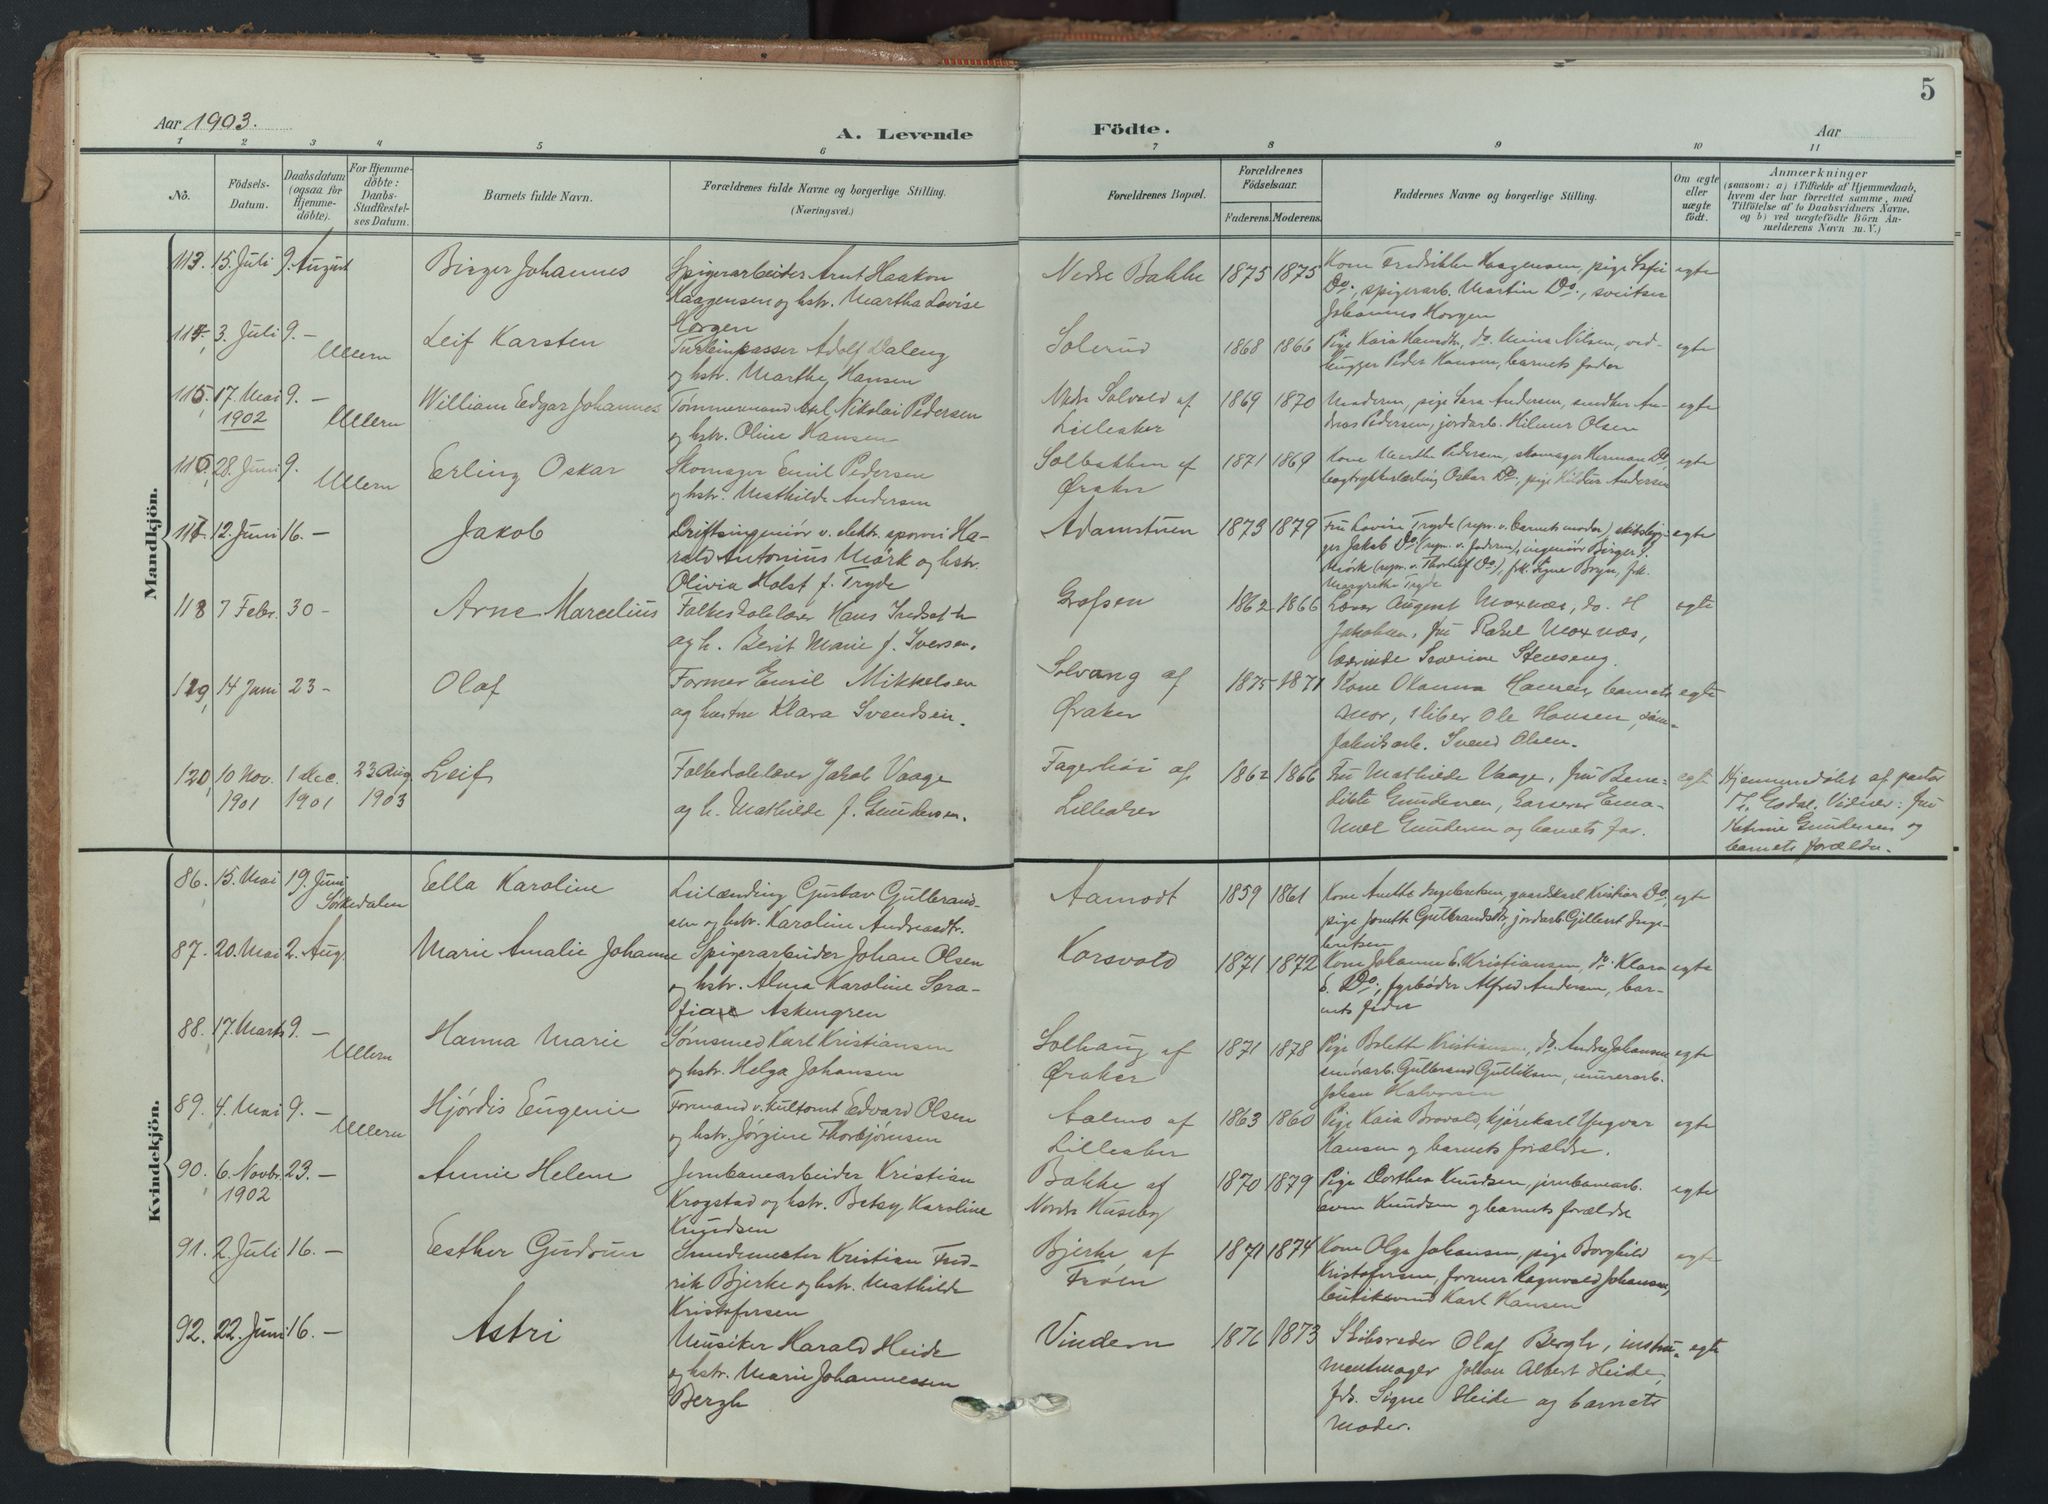 5
Aar 1903.
A. Levende
Födte.
Aar
1 2 3 4 5 6 7 8 9 10 11
No.
Födsels-
Datum.
Daabsdatum
(ogsaa for
Hjemme-
döbte).
For Hjemme-
döbte:
Daabs-
Stadfestel-
ses Datum.
Barnets fulde Navn.
Forældrenes fulde Navne og borgerlige Stilling.
(Næringsvei.)
Forældrenes Bopæl.
Forældrenes
Födselsaar.
Faderens. Moderens.
Faddernes Navne og borgerlige Stilling.
Om ægte
eller
uægte
födt.
Anmærkninger
(saasom: a) i Tilfælde af Hjemmedaab,
hvem der har forrettet samme, med
Tilföielse af to Daabsvidners Navne,
og b) ved uægtefödte Börn An-
melderens Navn m. V.)
Mandkjön.
113. 15. Juli 9. August
Birger Johannes
Spigerarbeider Arnt Haakon
Kaagensen og hstr. Martha Lovise
Horgen
Nedre Bakke
1875 1875
Kone Fredrikke Kaagensen, pige
Do., spigerarb. Martin Do., sveitser
Johannes Horgen
egte
114. 3. Juli 9. –
Ullern
Leif Karsten
Adolf Daleng
og hstr. Marthe Hansen
Solerud
1868 1866
Pige Kaia Do. Mina Nilsen, ved-
hugger Peder Hansen, barnets fader
egte
115. 17. Mai 9. –
1902
Ullern
William Edgar Johannes
Tømmermand Axel Nikolai Pedersen
og hstr. Oline Hansen
Nedre Solvold af
Lilleaker
1869 1870
Moderen, pige Sara Andersen, snedker An-
dreas Pedersen, jordarb. Hilmer Olsen
egte
116. 28. Juni 9.
Ullern
Erling Oskar
Skomager Emil Pedersen
og hstr. Mathilde Andersen
Solbakken af
Øraker
1871 1869
Kone Marthe Pedersen, skomager Herman Do.,
bogtrykkerlærling Oskar Do., pige Andersen
egte
117. 12. Juni 16. –
Jakob
Driftsingeniør v. elektr. sporvei Ha-
rald Antonius Mörk og hstr.
Olivia Holst f. Tryde
Adamstuen
1873 1879
Fru Lovise Tryde (repr. v. barnets moder)
ger Jakob Do. (repr. v. faderen), ingeniør Birger
Mörk (repr. v. Thorleif Do.), frk. Signe Bryn, frk.
Margrethe Tryde
egte
118 7 Febr. 30 –
Arne Marcelius
Folkeskolelærer Hans Fredseth
og h. Berit Marie f. Iversen.
Grafsen
1862 1866
Lærer August Moxnæs, do. H
Jakobsen, fru Rakel Moxnæs,
lærerinde Severine Stenseng.
egte
119, 14 Juni 23 –
Olaf
Former Emil Mikkelsen
og hustru Klara Svendsen.
Solvang af
Øraker
1875 1871
Kone Olanna Hansen, barnets
Mor, sliber Ole Hansen, söm-
fabrikarb. Svend Olsen.
egte
120, 10 Nov. 1 Dec. 23 Aug.
1901 1901 1903
Leif
Folkeskolelærer Jakob Vaage
og h. Mathilde f. Gundersen.
Fagerhøi af
Lilleaker
1862 1866
Fru Mathilde Vaage, fru Bene-
dikte Gundersen, Ema-
nuel Gundersen og barnets far.
egte
Hjemmedøbt af pastor
Vidner: fru
Gundersen og
barnets forældre.
Kvindekjön.
86. 15. Mai 19. Juni
Sørkedalen
Ella Karoline
Leilænding Gustav Gulbrand-
sen og hstr. Karoline Andreasdtr.
Aamodt
1859 1861
Kone Anette Ingebretsen, gaardskarl Kristian Do.,
pige Jonette Gulbrandsdtr, jordarb. Gilbert Inge-
bretsen
egte
87. 20. Mai 2. Aug.
Marie Amalie Johanne
Spigerarbeider Johan Olsen
og hstr. Alma Karoline Sera-
fia Askengren
Korsvold
1871 1872
Kone Johanne E. Kristiansen, do. Klara
E. Do., fyrbøder Alfred Andersen, bar-
nets fader
egte
88. 17. Marts 9. –
Ullern
Hanna Marie
Sømsmed Karl Kristiansen
og hstr. Helga Johansen
Solhaug af
Øraker
1871 1878
Pige Bolette Kristiansen, do. Johansen
arb. Gulbrand Gulliksen, murerarb.
Johan Halvorsen
egte
89. 4. Mai 9. –
Ullern
Hjördis Eugenie
Formand v. Edvard Olsen
og hstr. Jörgine Thorbjörnsen
Aalmo af
Lilleaker
1863 1860
Pige Kaia Brovold, kjörekarl Yngvar
Hansen og barnets forældre.
egte
90. 6. Novbr. 23. –
1902
Annie Helene
Jernbanearbeider Kristian
Krogstad og hstr. Betsy Karoline
Knudsen
Bakke af
Nordre Huseby
1870 1879
Pige Dorthea Knudsen, jernbanearb.
Even Knudsen og barnets forældre
egte
91. 2. Juli 16. –
Esther Gudrun
Smedemester Kristian Fred-
rik Bjerke og hstr. Mathilde
Kristofersen
Bjerke af
Frøen
1871 1874
Kone Olga Johansen, pige Borghild
Kristofersen, former Ragnvald Johansen,
Karl Hansen
egte
92. 22. Juni 16. –
Astri
Musiker Harald Heide
og hstr. Marie Johannessen
Bergh
Vindern
1876 1873
Skibsreder Olaf Bergh, instru-
mentmager Johan Albert Heide,
frk. Signe Heide og barnets
Moder.
egte